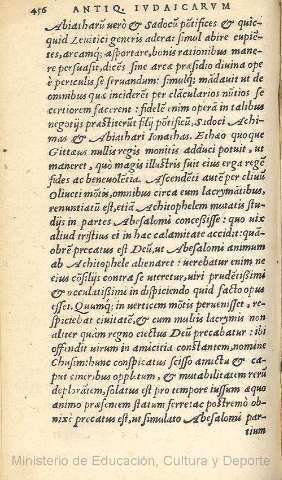 456 ANTIQ. IVDAICARVM
Abiatharū verò & Sadocū pōtifices & quic-
quid Leuitici generis aderat simul abire cupiē-
tes, arcamq; asportare, bonis rationibus mane-
re persuasit, dicēs sine arca præsidio diuina ope
è periculis se seruandum: simulq; mādauit ut de
omnibus quæ inciderēt per clāculares nūtios se
certiorem facerent: fidelē enim operā in talibus
negotijs præstiterūt filij pōtificū, Sadoci Achi-
mas & Abiathari Ionathas. Ethao quoque
Gittæus nullis regis monitis adduci potuit, ut
maneret, quo magis illustris fuit eius erga regē
fides ac beneuolētia. Ascendēti autē per cliuū
Oliueti mōtis, omnibus circa eum lacrymātibus,
renuntiatū est, etiā Achitophelem mutatis stu-
dijs in partes Abesalomi concessisse: quo nix
aliud tristius et in hac calamitate accidit: quā-
obrē precatus est Deū, ut Abesalomi animum
ab Achitophele alienaret: uerebatur enim ne
eius cōsilijs contra se uteretur, uiri prudētissimi
& occulatissimi in dispiciendo quid facto opus
esset. Quumq; in uerticem mōtis peruenisset, re-
spiciebat ciuitatē, & cum multis lacrymis non
aliter quàm regno eiectus Deū precabatur: ibi
offendit uirum in amicitia constantem, nomine
Chusim: hunc conspicatus scisso amictu & ca-
put cineribus oppletum, & mutabilitatem rerū
deplorātem, solatus est pro tempore iussum æquo
animo præsentem statum ferre: ac postremò ob
nixè precatus est, ut simulato Abesalomi par-
tium
Ministerio de Educación, Cultura y Deporte